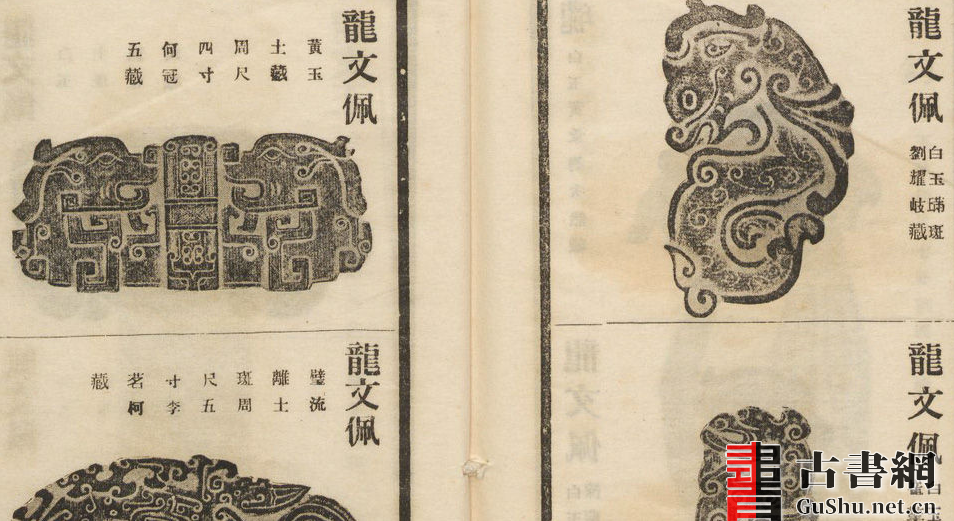 龍文佩
白玉璊斑
劉耀岐藏
龍文佩
白玉
龍文佩
黃玉
土
周尺
四寸
何冠
五藏
龍文佩
璧流
離土
斑周
尺五
寸李
茗柯
藏
古書網
GuShu.net.cn